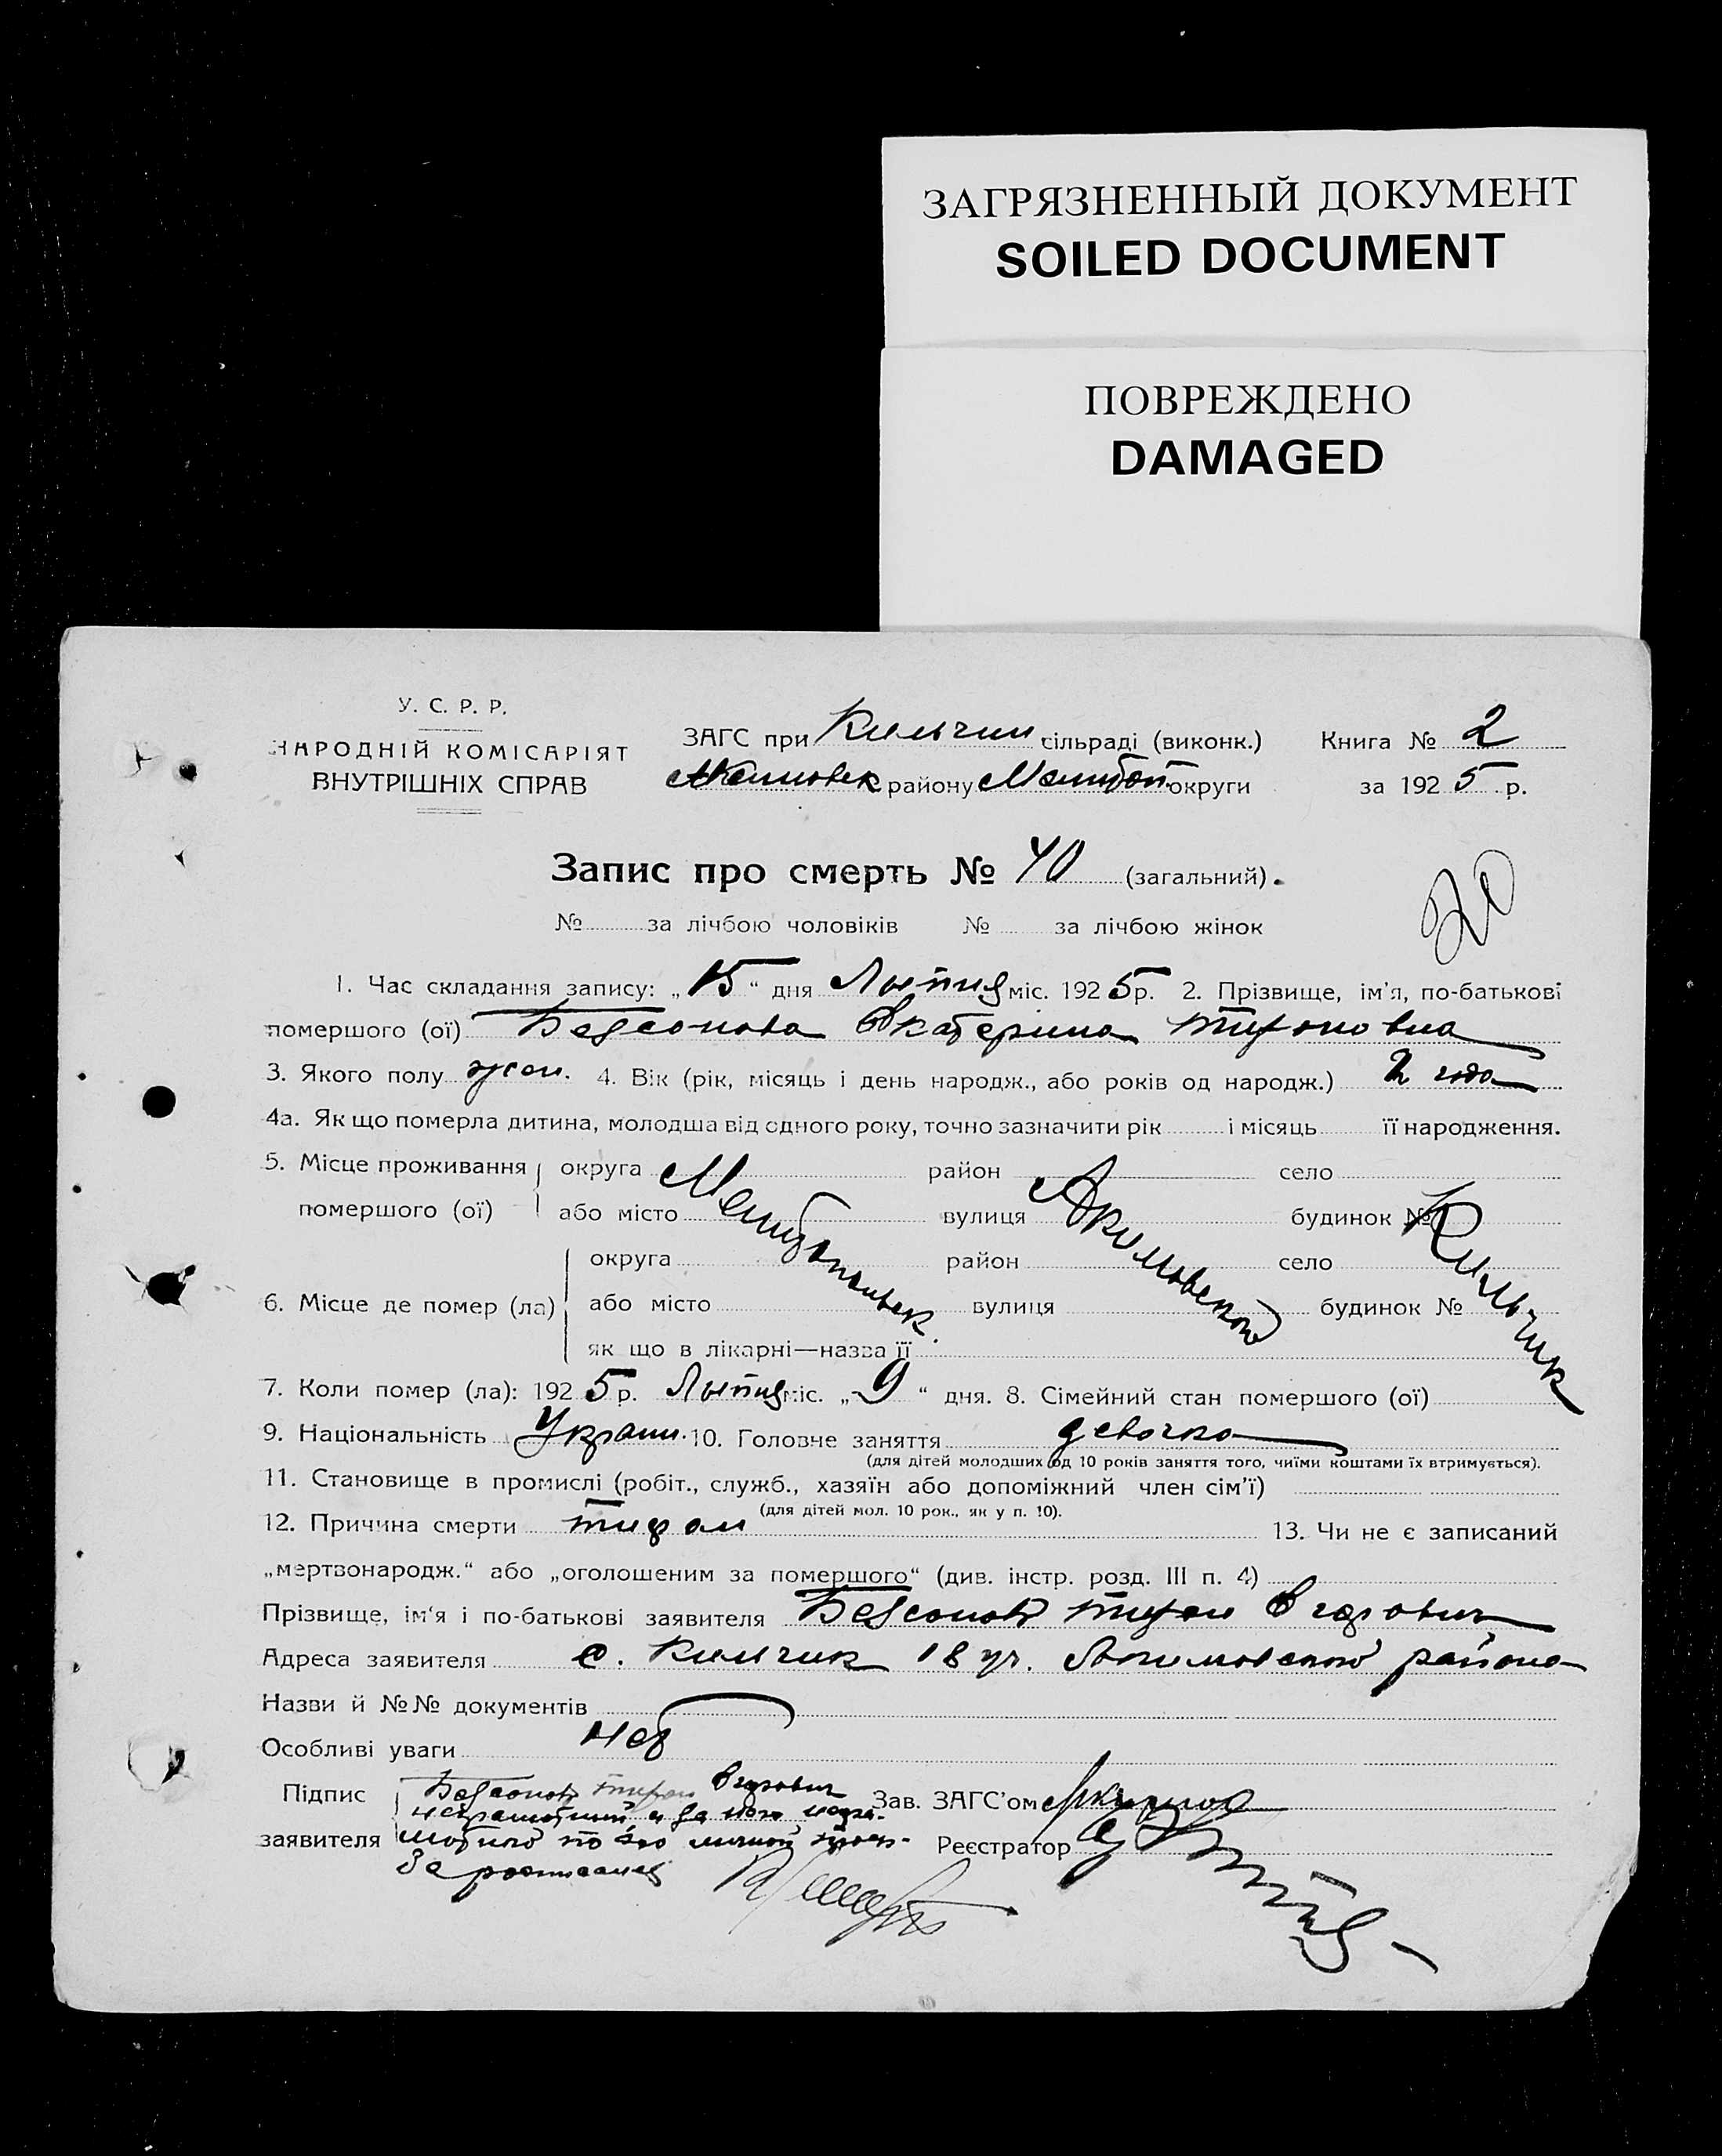 ЗАГРЯЗНЕННЫЙ ДОКУМЕНТ
SOILED DOCUMENT
ПОВРЕЖДЕНО
DAMAGED
У. С. Р. Р.
НАРОДНІЙ КОМІСАРІЯТ
ВНУТРІШНІХ СПРАВ
ЗАГС при Кильчик сільраді (виконк.)
Акимовск району Мелитоп. округи
Книга № 2
за 1925 р.
Запис про смерть № 40 (загальний).
20
№ за лічбою чоловіків № за лічбою жінок
1. Час складання запису: „15“ дня Липня міс. 1925 р. 2. Прізвище, ім'я, по-батькові
помершого (ої) Безсонова Екатерина Тифоновна
3. Якого полу жен. 4. Вік (рік, місяць і день народж., або років од народж.) 2 года
4а. Як що померла дитина, молодша від одного року, точно зазначити рік і місяць її народження.
5. Місце проживання помершого (ої)
округа район село
або місто вулиця будинок №
Мелитопольск. Акимовской Кильчик
6. Місце де помер (ла)
округа район село
або місто вулиця будинок №
як що в лікарні—назва її
7. Коли помер (ла): 1925 р. Липня міс. „9“ дня. 8. Сімейний стан помершого (ої)
9. Національність Украин. 10. Головне заняття девочка
(для дітей молодших од 10 років заняття того, чиїми коштами їх втримується).
11. Становище в промислі (робіт., служб., хазяїн або допоміжний член сім'ї)
(для дітей мол. 10 рок., як у п. 10).
12. Причина смерти 13. Чи не є записаний
„мертвонародж.“ або „оголошеним за помершого“ (див. інстр. розд. III п. 4)
Прізвище, ім'я і по-батькові заявителя Безсонов Тифон Егорович
Адреса заявителя с. Кильчик 18 уч. Акимовской района
Назви й №№ документів
Особливі уваги Нет
Підпис заявителя
Безсонов Тифон Егорович
неграмотный, а за него негра-
мотного по его личной прось-
бе росписался
Зав. ЗАГС'ом
Реєстратор